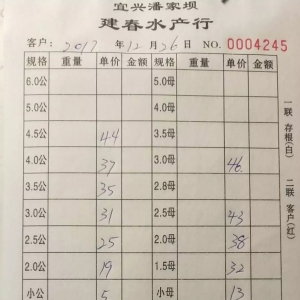 宜兴潘家坝
建春水产行
客户: 2017 年 12 月 26 日 NO. 0004245
规格 重量 单价 金额 规格 重量 单价 金额
6.0公 5.0母
5.0公 4.0母
4.5公 44 3.5母
4.0公 37 3.0母 46
3.5公 35 2.8母
3.0公 31 2.5母 43
2.5公 25 2.0母 38
2.0公 19 1.5母 32
小公 5 小母 13
一联 存根(白)
二联 客户(红)